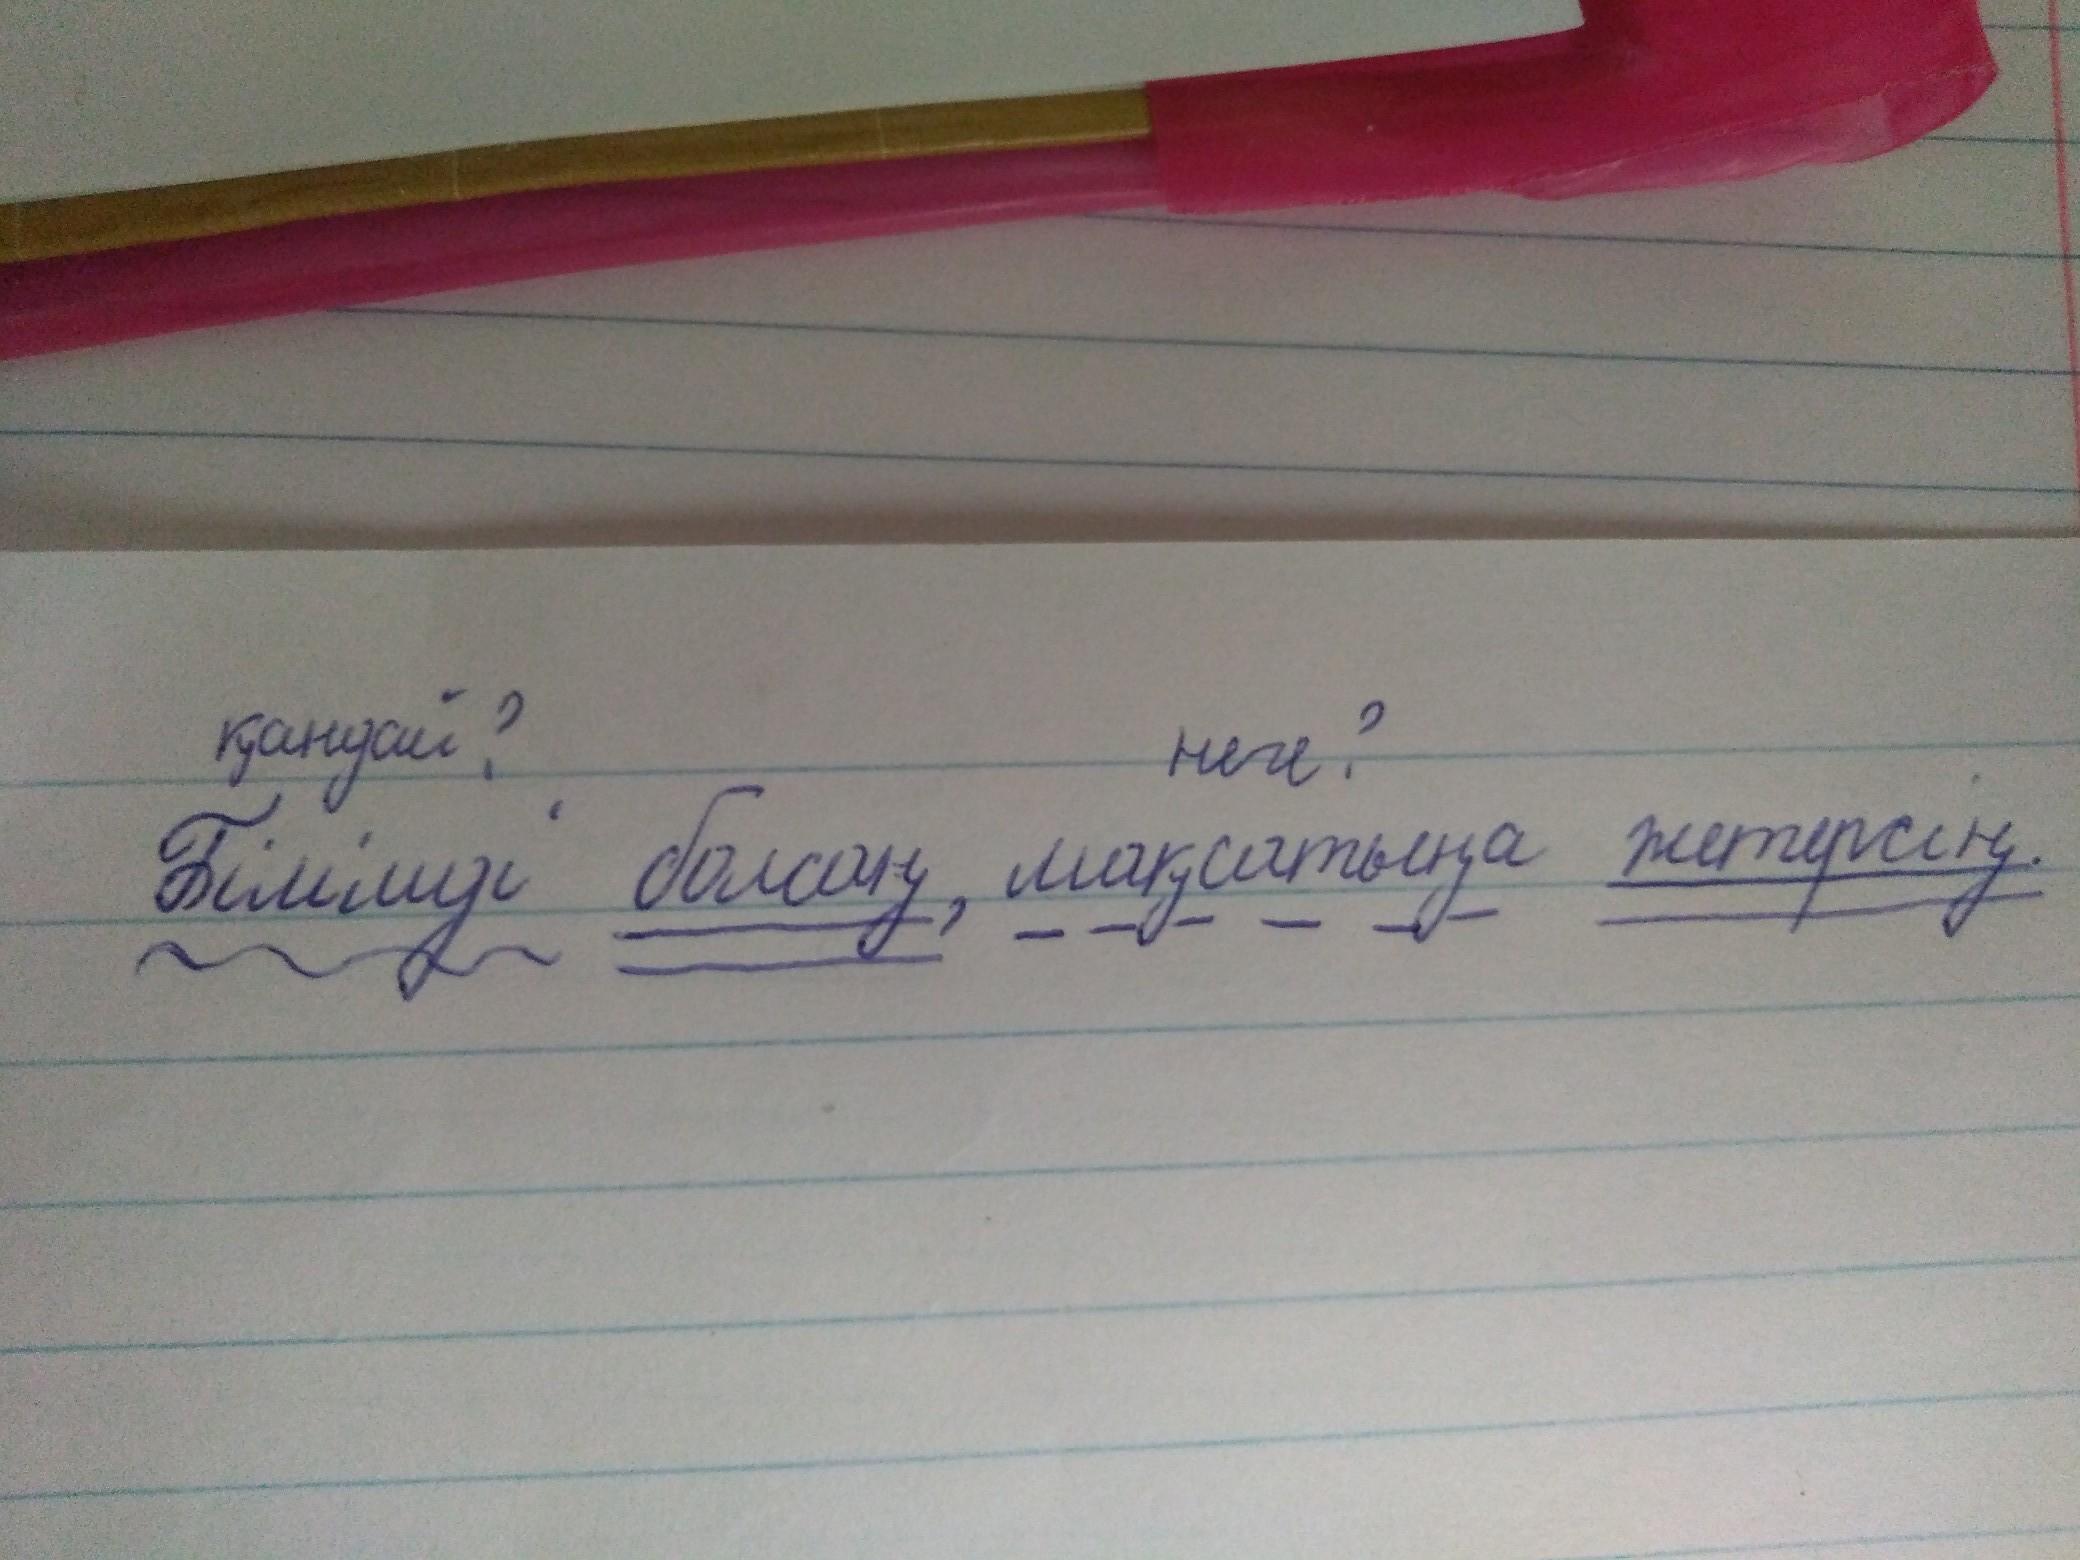 қандай? неге?
Білімді болсаң, мақсатыңа жетерсің.